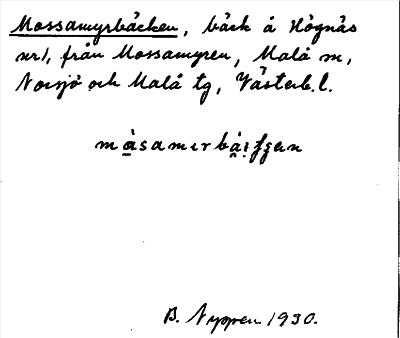 Mossamyrbäcken, bäck å Högnäs
nr 1, från Mossamyren, Malå sn,
Norsjö och Malå tg, Västerb. l.
B. Nyppen. 1930.